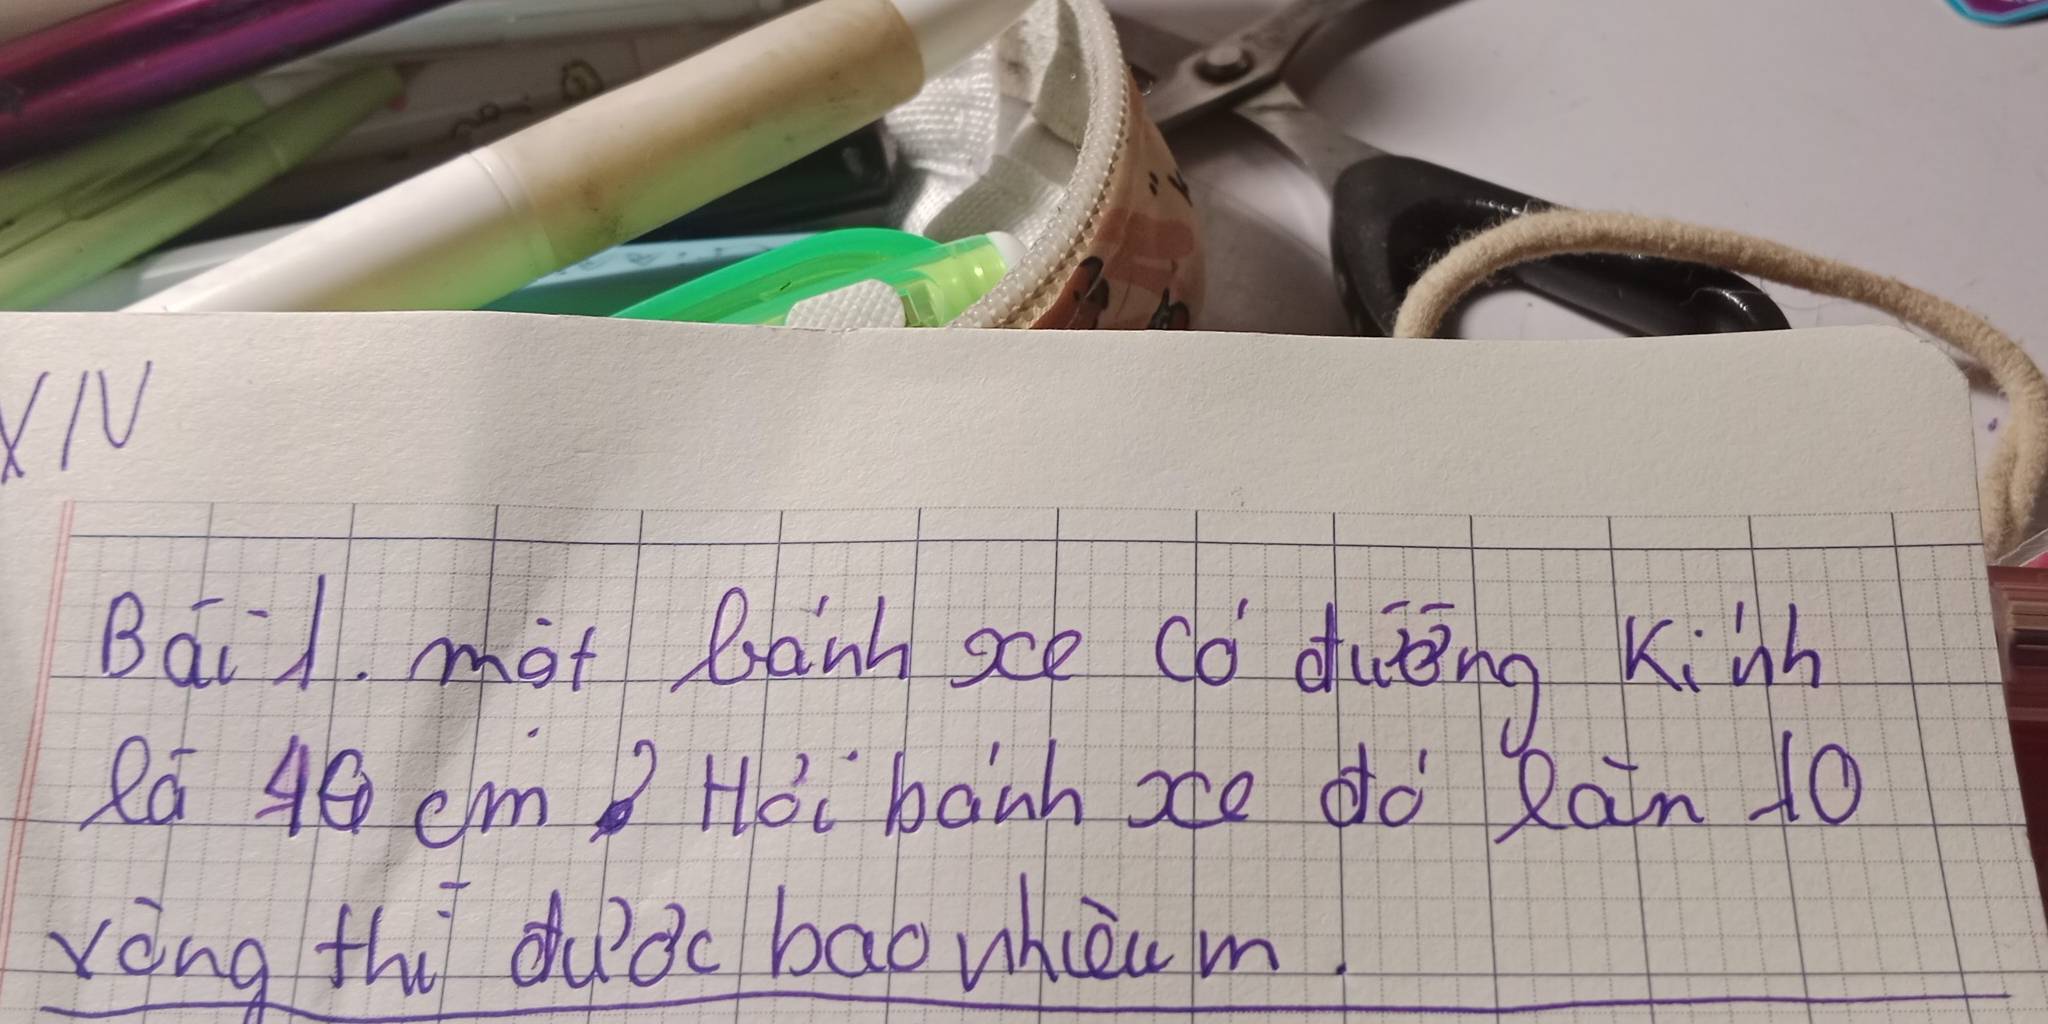 XIV
Bài 1. một bánh xe có đường kính
là 40 cm? Hỏi bánh xe đó lăn 10
vòng thì được bao nhiêu m.